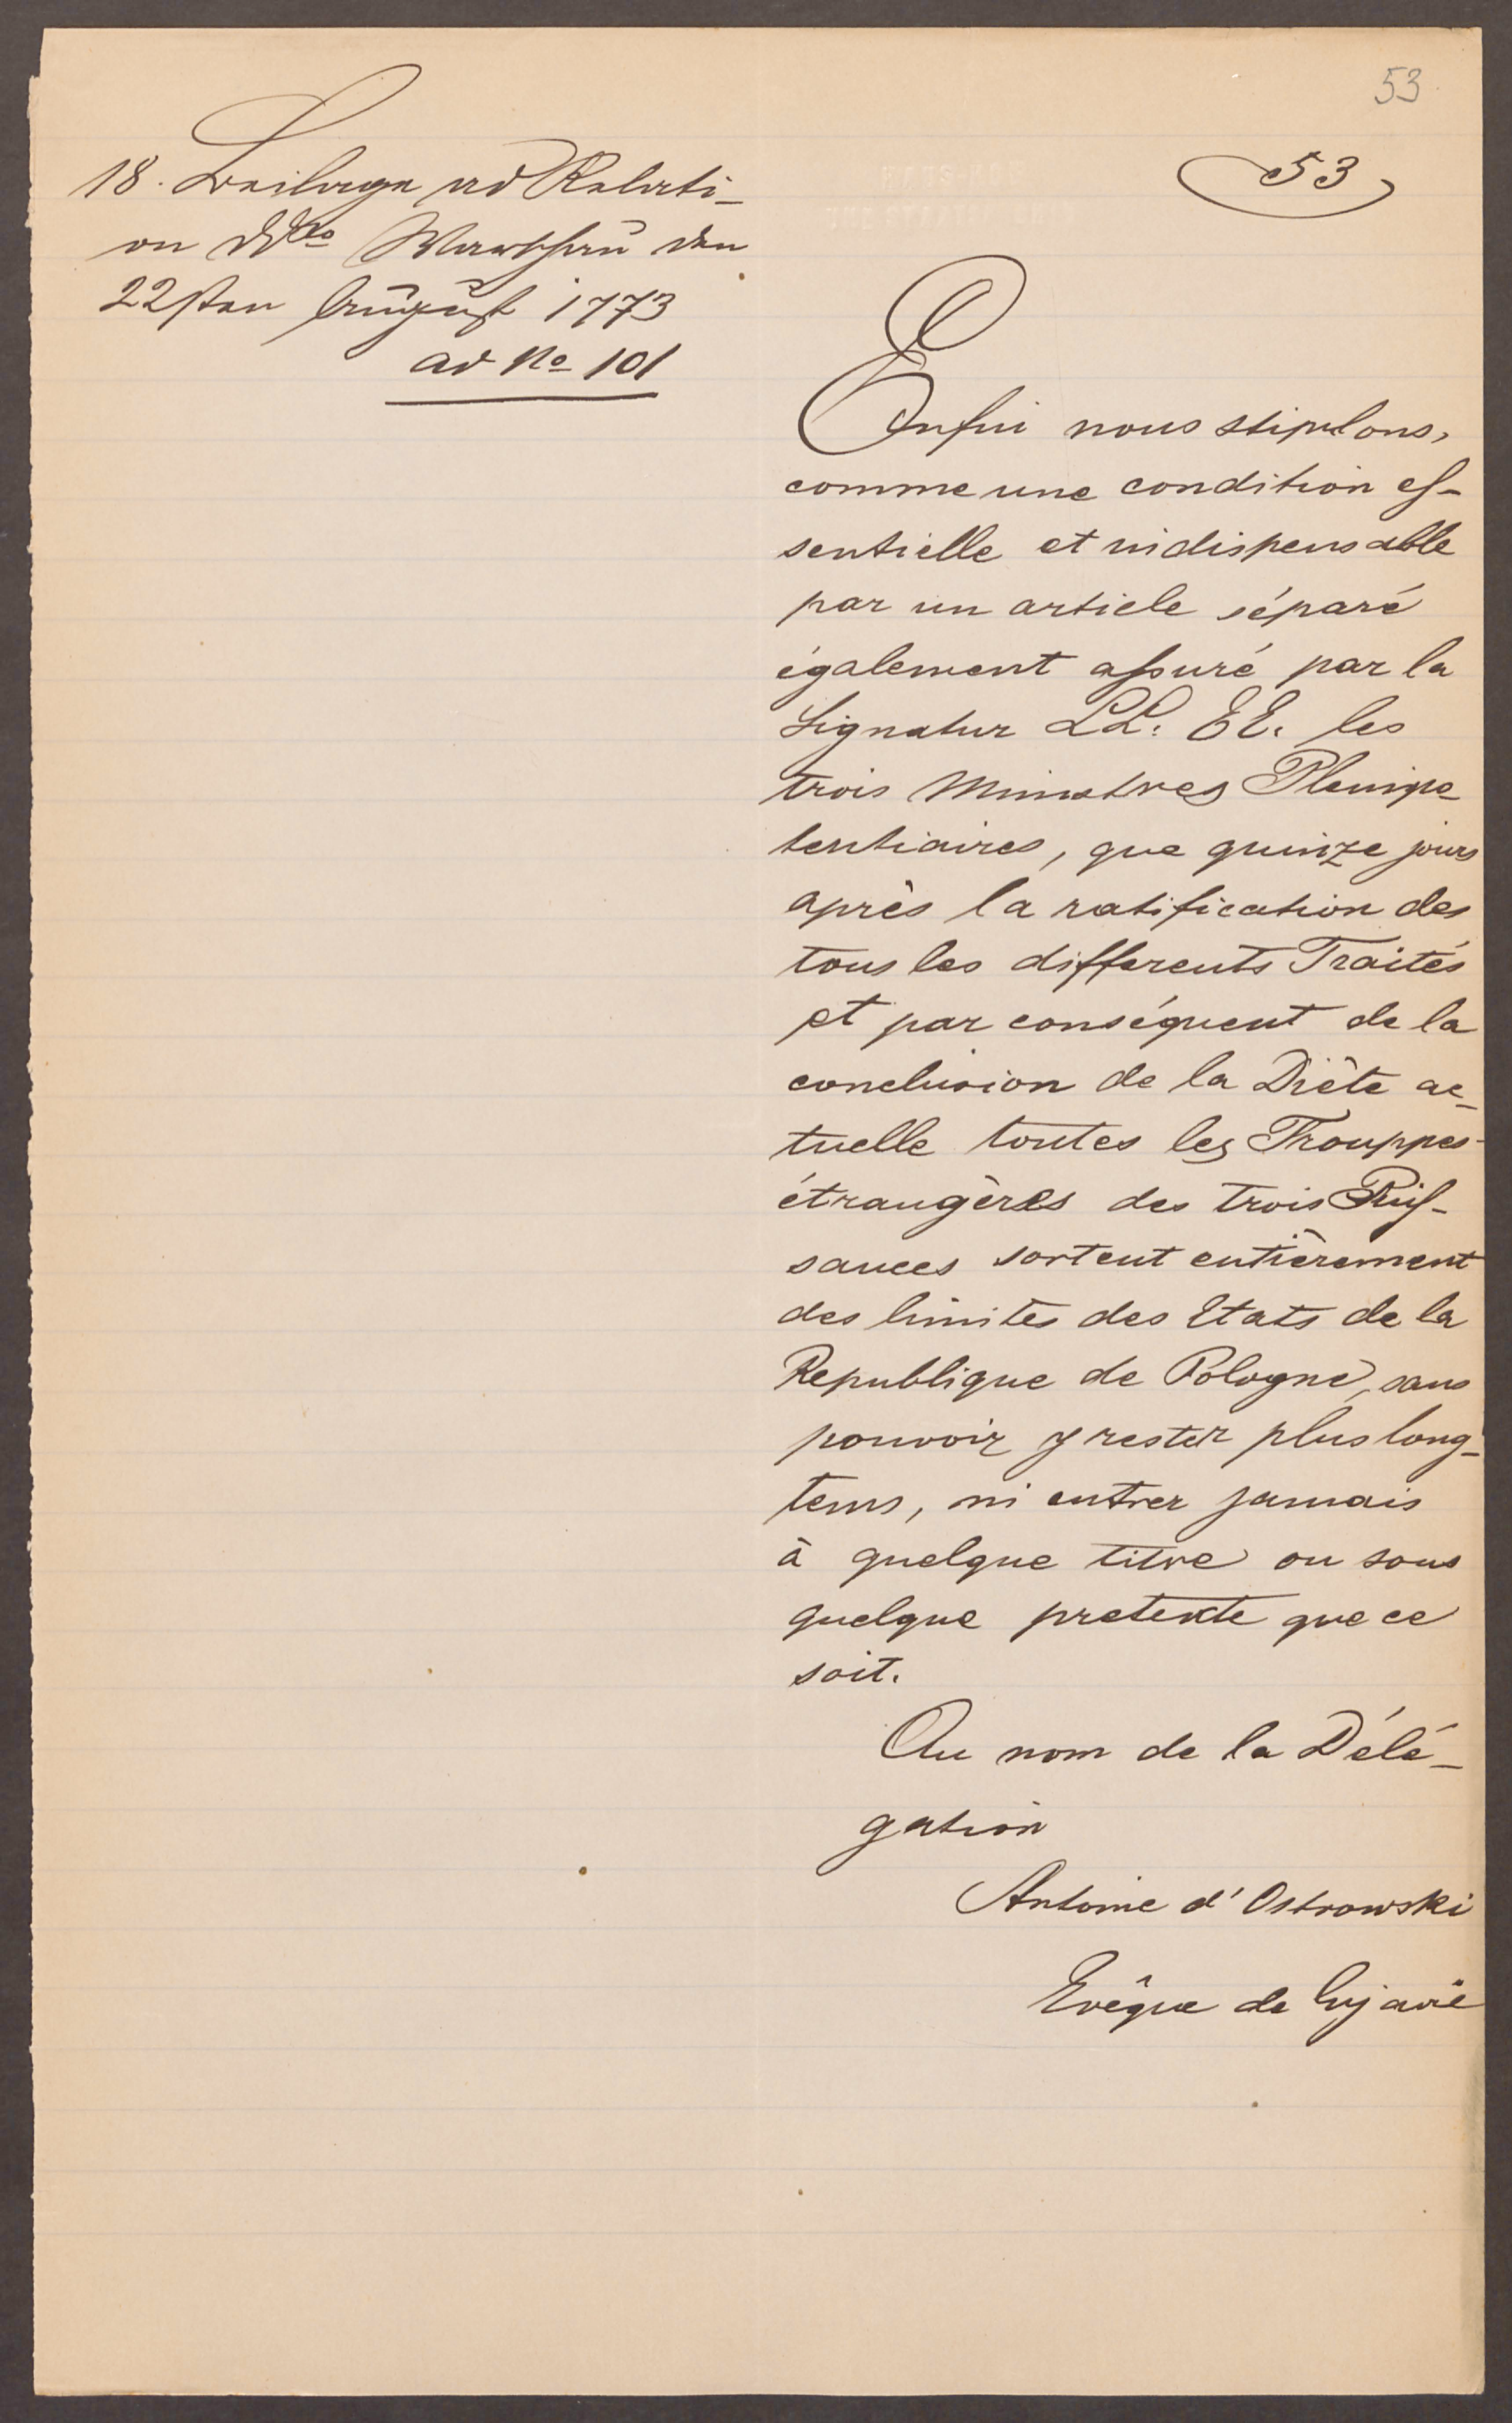 53
53
18. Beilage ad Relati-
on ddto Warschau den
22sten August 1773
ad No 101
Enfin nous stipulons,
comme une condition es-
sentielle et indispensable
par un article séparé
également assuré par la
Signatur LL. EE. les
trois Ministres Plenipo
tentiaires, que quinze jours
après la ratification des
tous les differents Traités
et par conséquent de la
conclusion de la Diète ac-
tuelle toutes les Trouppes
étrangères des trois Puis-
sances sortent entièrement
des limites des Etats de la
Republique de Pologne, sans
pouvoir y rester plus long-
tems, ni entrer jamais
à quelque titre ou sous
quelque pretexte que ce
soit.
Au nom de la Délé-
gation
Antoine d'Ostrowski
Evêque de Cujavie